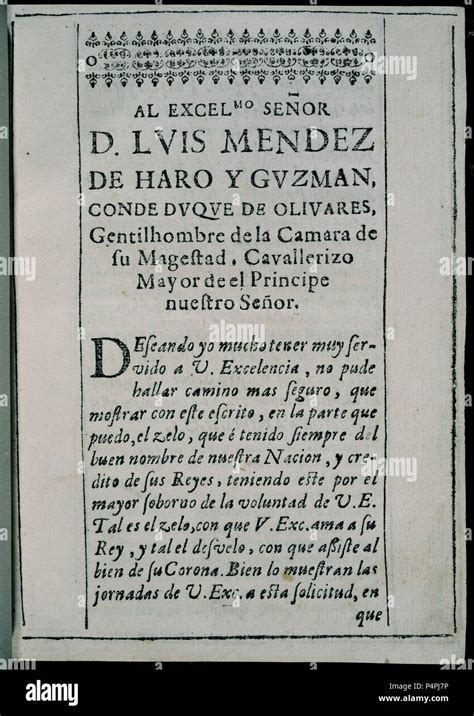 AL EXCEL^MO SEÑOR
D. LVIS MENDEZ
DE HARO Y GVZMAN,
CONDE DVQVE DE OLIVARES,
Gentilhombre de la Camara de
ſu Mageſtad, Cavallerizo
Mayor de el Principe
nueſtro Señor.
DEſeando yo mucho tener muy ſer-
vido a V. Excelencia, no pude
hallar camino mas ſeguro, que
moſtrar con eſte eſcrito, en la parte que
puedo, el zelo, que é tenido ſiempre del
buen nombre de nueſtra Nacion, y cre-
dito de ſus Reyes, teniendo eſte por el
mayor ſoborno de la voluntad de V. E.
Tal es el zelo, con que V. Exc. ama a ſu
Rey, y tal el deſvelo, con que aſsiſte al
bien de ſu Corona. Bien lo mueſtran las
jornadas de V. Exc. a eſta ſolicitud, en
que
alamy
Image ID: P4PJ7P
www.alamy.com